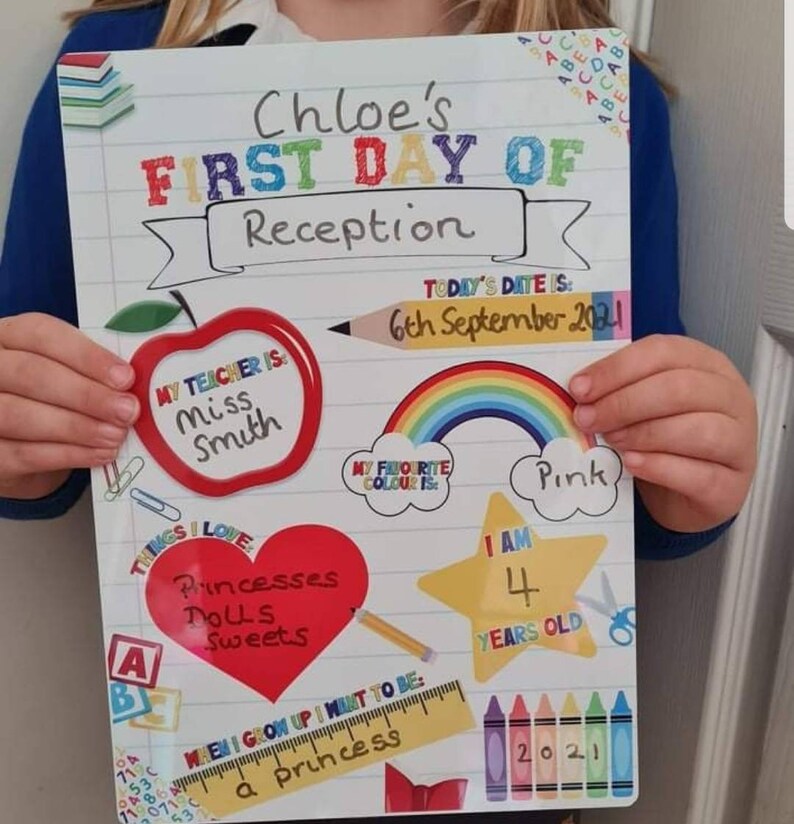 Chloe's
FIRST DAY OF
Reception
TODAY'S DATE IS:
6th September 2021
MY TEACHER IS:
Miss
Smith
MY FAVOURITE
COLOUR IS:
Pink
THINGS I LOVE:
Princesses
Dolls
Sweets
I AM
4
YEARS OLD
A
B
C
WHEN I GROW UP I WANT TO BE:
a princess
2021